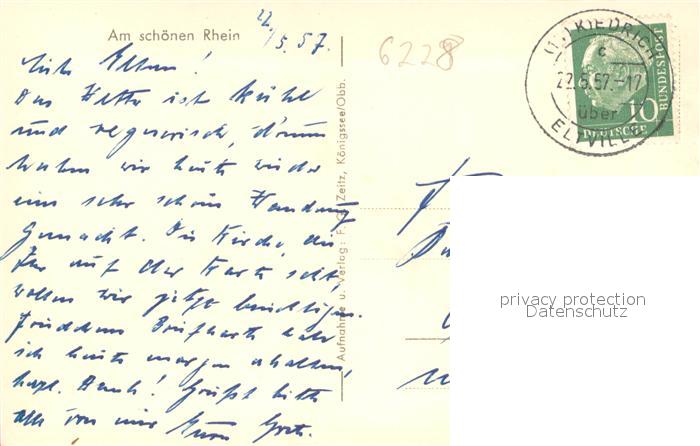 Am schönen Rhein
22/5.57.
6228
Liebe Eltern!
Das Wetter ist kühl
und regnerisch, drum
haben wir heute wieder
eine sehr schöne Wanderung
gemacht. Die Kirche, die
Ihr auf der Karte seht,
wollen wir jetzt besichtigen.
Briefkarte habe
ich heute morgen erhalten,
herzl. Dank! Grüßt bitte
alle von mir Eure
Aufnahme u. Verlag: F. G. Zeitz, Königssee/Obb.
KIEDRICH
c
22.5.57.-17
über
ELTVILLE
10
DEUTSCHE
BUNDESPOST
privacy protection
Datenschutz